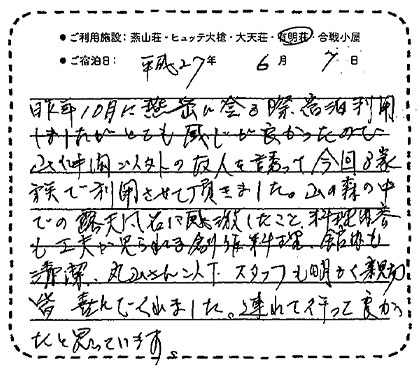 ●ご利用施設：燕山荘・ヒュッテ大槍・大天荘・有明荘・合戦小屋
●ご宿泊日： 平成27年 6月 7日
昨年10月に燕岳に登る際、宿泊利用
しましたがとても感じが良かったので
山仲間以外の友人を誘って今回3家
族で利用させて頂きました。山の森の中
での露天風呂に感激したこと、料理内容
も工夫が見られる創作料理、館内も
清潔、丸山さん以下、スタッフも明かく親切
皆喜んでくれました。連れて行って良かっ
たと思っています。